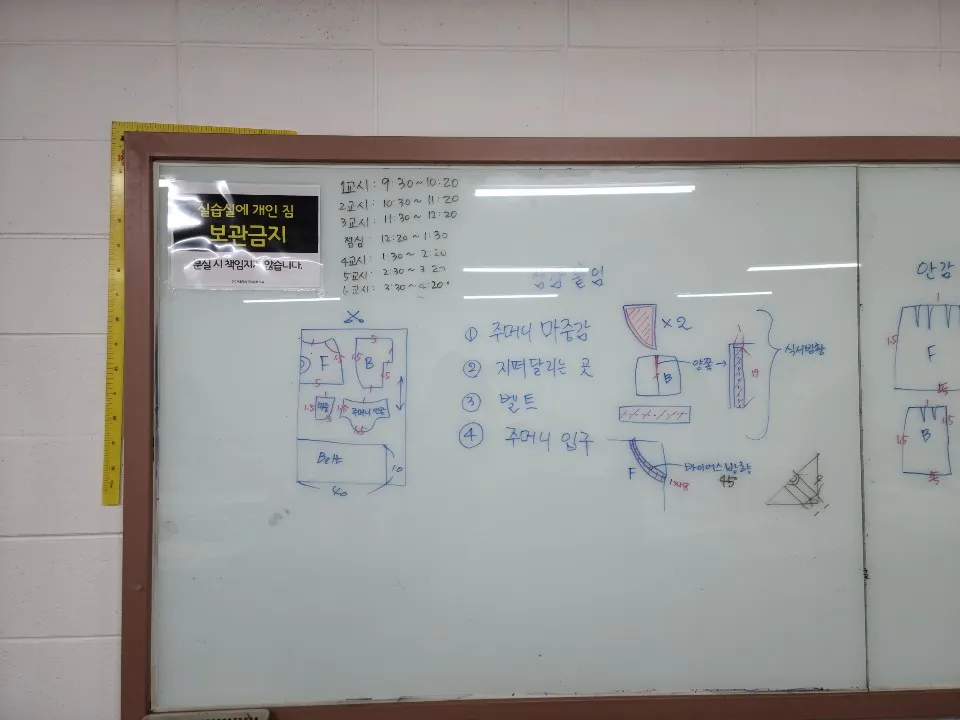 실습실에 개인 짐
보관금지
분실 시 책임지지 않습니다.
1교시 : 9:30~10:20
2교시 : 10:30~11:20
3교시 : 11:30~12:20
점심 : 12:20~1:30
4교시 : 1:30~2:20
5교시 : 2:30~3:20
6교시 : 3:30~4:20
① 주머니 마중감
×2
② 지퍼달리는 곳
B
양쪽
19
식서방향
③ 벨트
④ 주머니 입구
F
바이어스 방향
45°
F
B
5
1.5
5
1.5
5
1.5
1.5
주머니 안감
1.5
Belt
10
40
안감
1.5
F
1.5
B
1.5